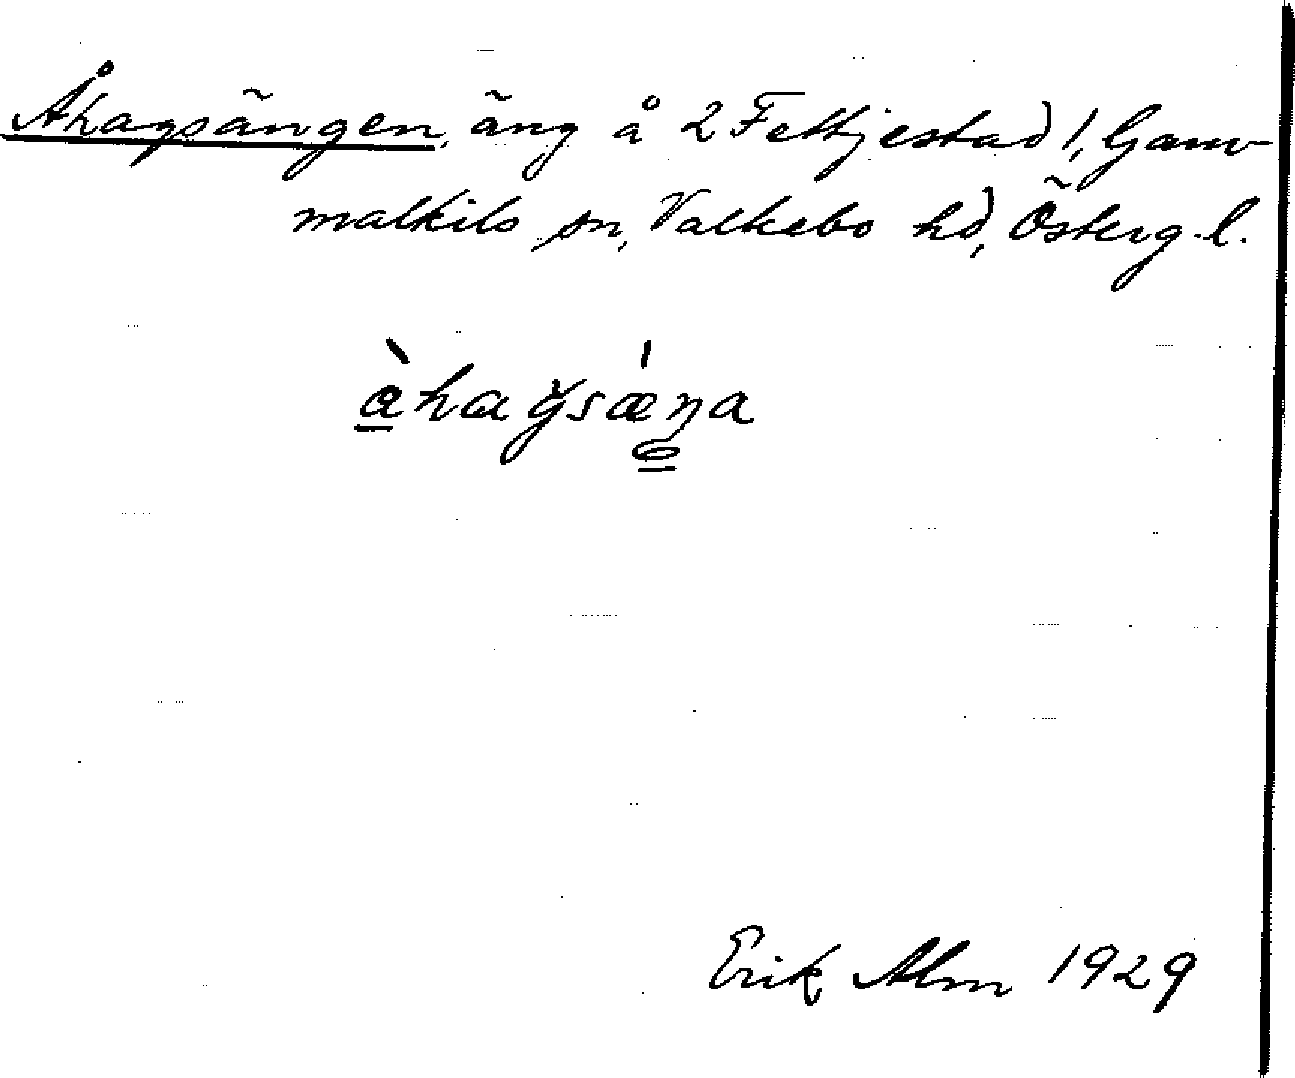 Åhagsängen, äng å 2 Fettjestad !, Gam-
malkils sn, Valkebo hd, Österg. l.
Erik Alm 1929